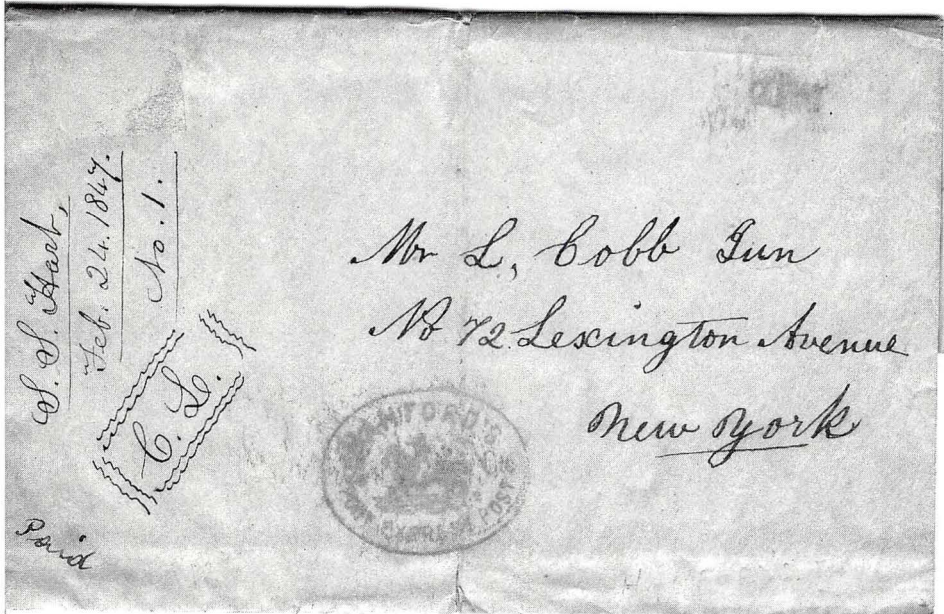 S. S. Hart,
Feb. 24. 1847.
No. 1.
C. L.
Paid
Mr L, Cobb Jun
No 72 Lexington Avenue
New York
EXPRESS POST